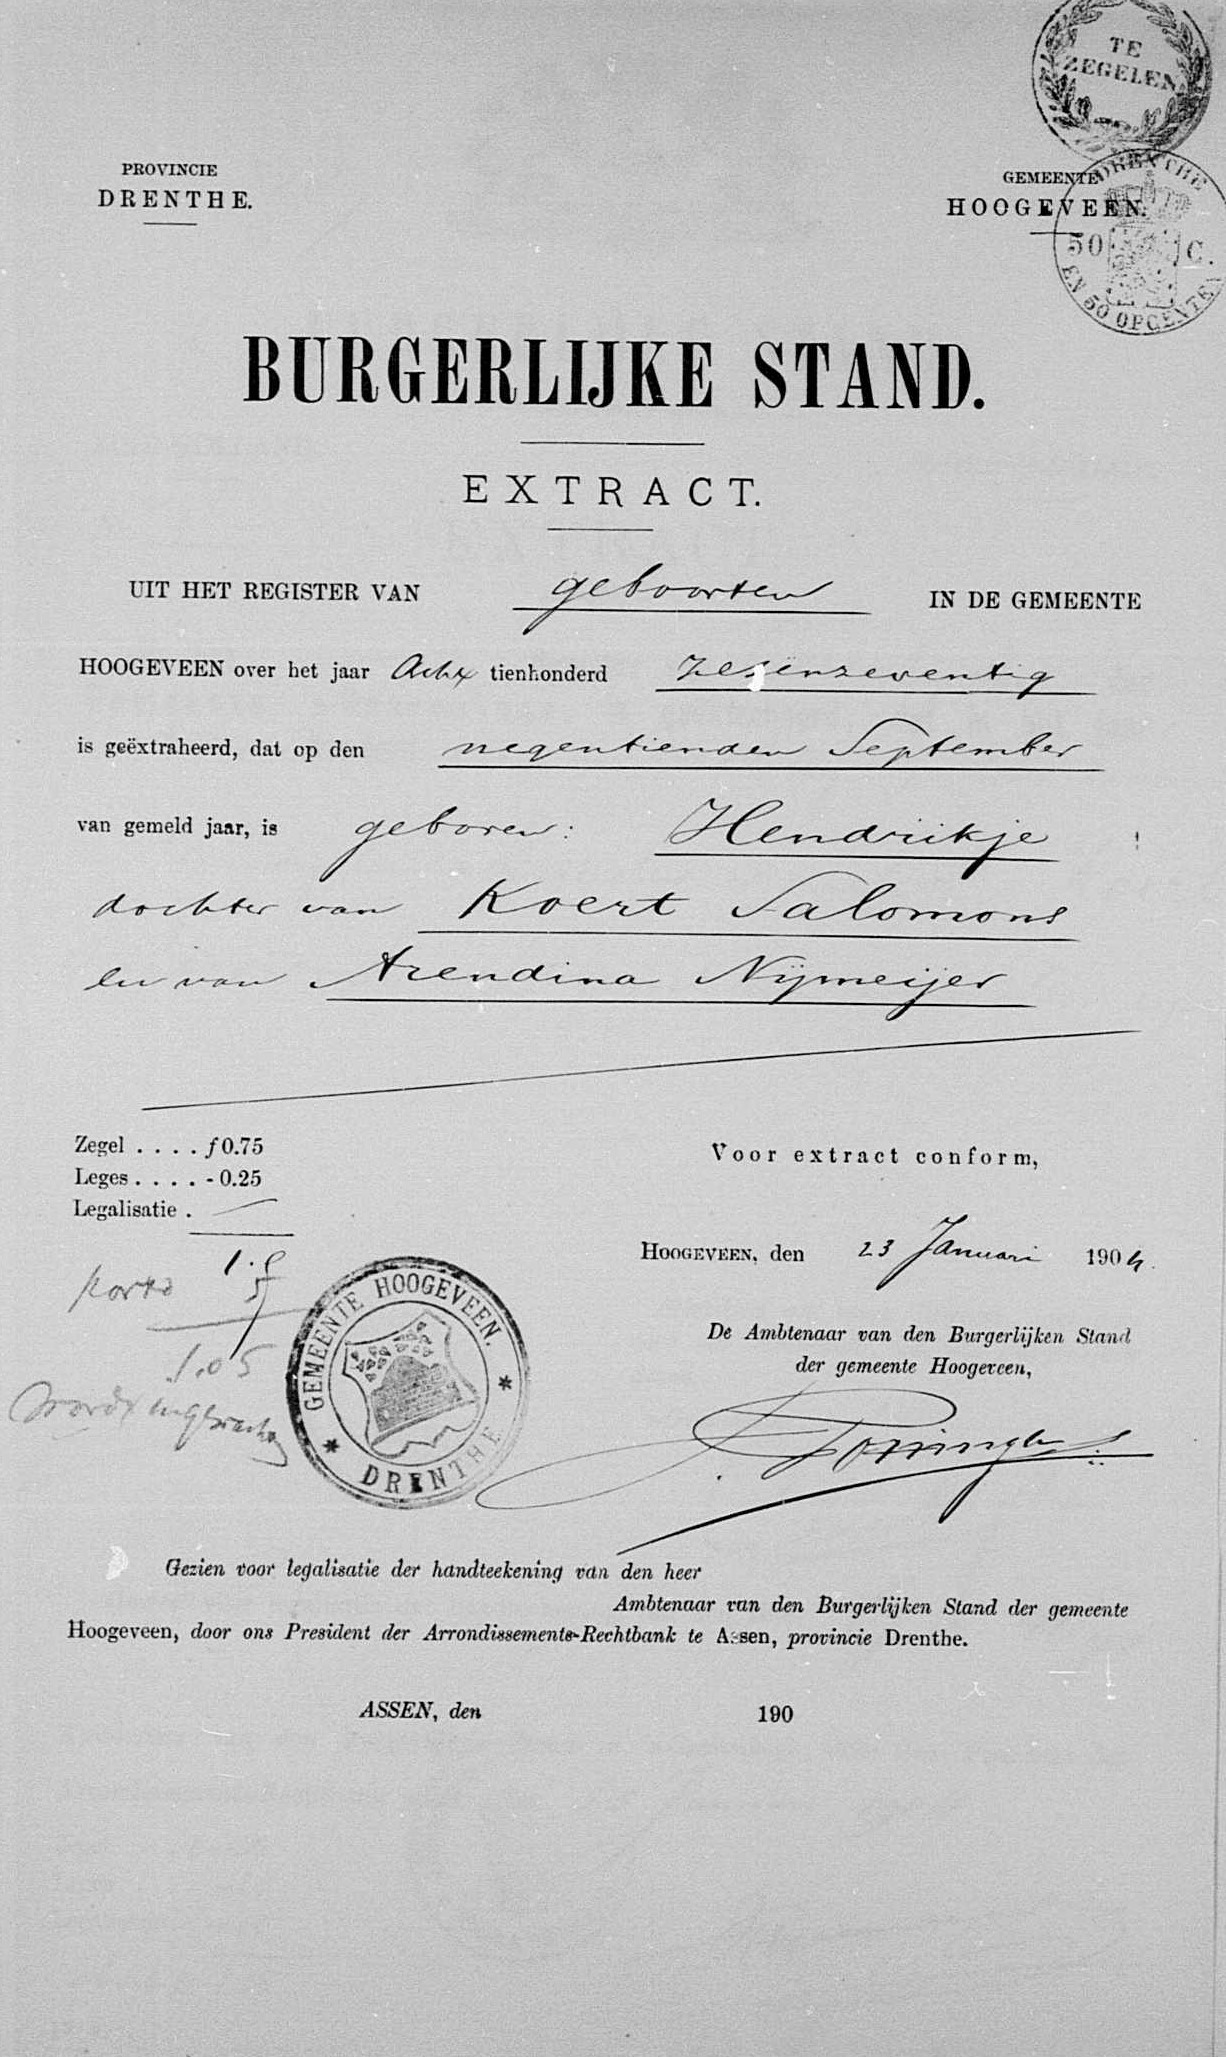 TE
ZEGELEN
PROVINCIE
DRENTHE.
GEMEENTE
HOOGEVEEN.
DRENTHE
50 C.
EN 50 OPCENTEN
BURGERLIJKE STAND.
EXTRACT.
UIT HET REGISTER VAN geboorten IN DE GEMEENTE
HOOGEVEEN over het jaar Acht tienhonderd zesenzeventig
is geëxtraheerd, dat op den negentienden September
van gemeld jaar, is geboren: Hendrikje
dochter van Koert Salomons
en van Arendina Nijmeijer
Zegel . . . . f 0.75
Leges . . . . - 0.25
Legalisatie .
Voor extract conform,
HOOGEVEEN, den 23 Januari 1904.
porto 5
1.05
GEMEENTE HOOGEVEEN.
* DRENTHE *
De Ambtenaar van den Burgerlijken Stand
der gemeente Hoogeveen,
Gezien voor legalisatie der handteekening van den heer
Ambtenaar van den Burgerlijken Stand der gemeente
Hoogeveen, door ons President der Arrondissements-Rechtbank te Assen, provincie Drenthe.
ASSEN, den 190